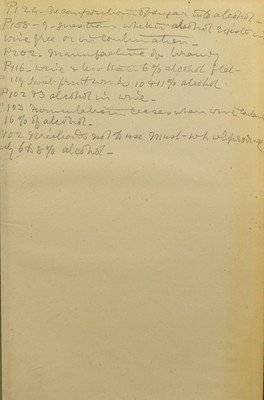 P. 126. Decomposition of sugar into alcohol -
P. 158 - 9 - question whether alcohol exists in
wine free or in combination -
P 202. Manufacture of brandy
P 116 - wine & less than 6% alcohol flat -
P. 119 Sweet fruit wine 10 & 11% alcohol
P 102 & 3 alcohol in wine -
P 103 fermentation ceases when wine takes
16% of alcohol -
P 102 not to use must - wh. will produce
only 6 to 8% alcohol -